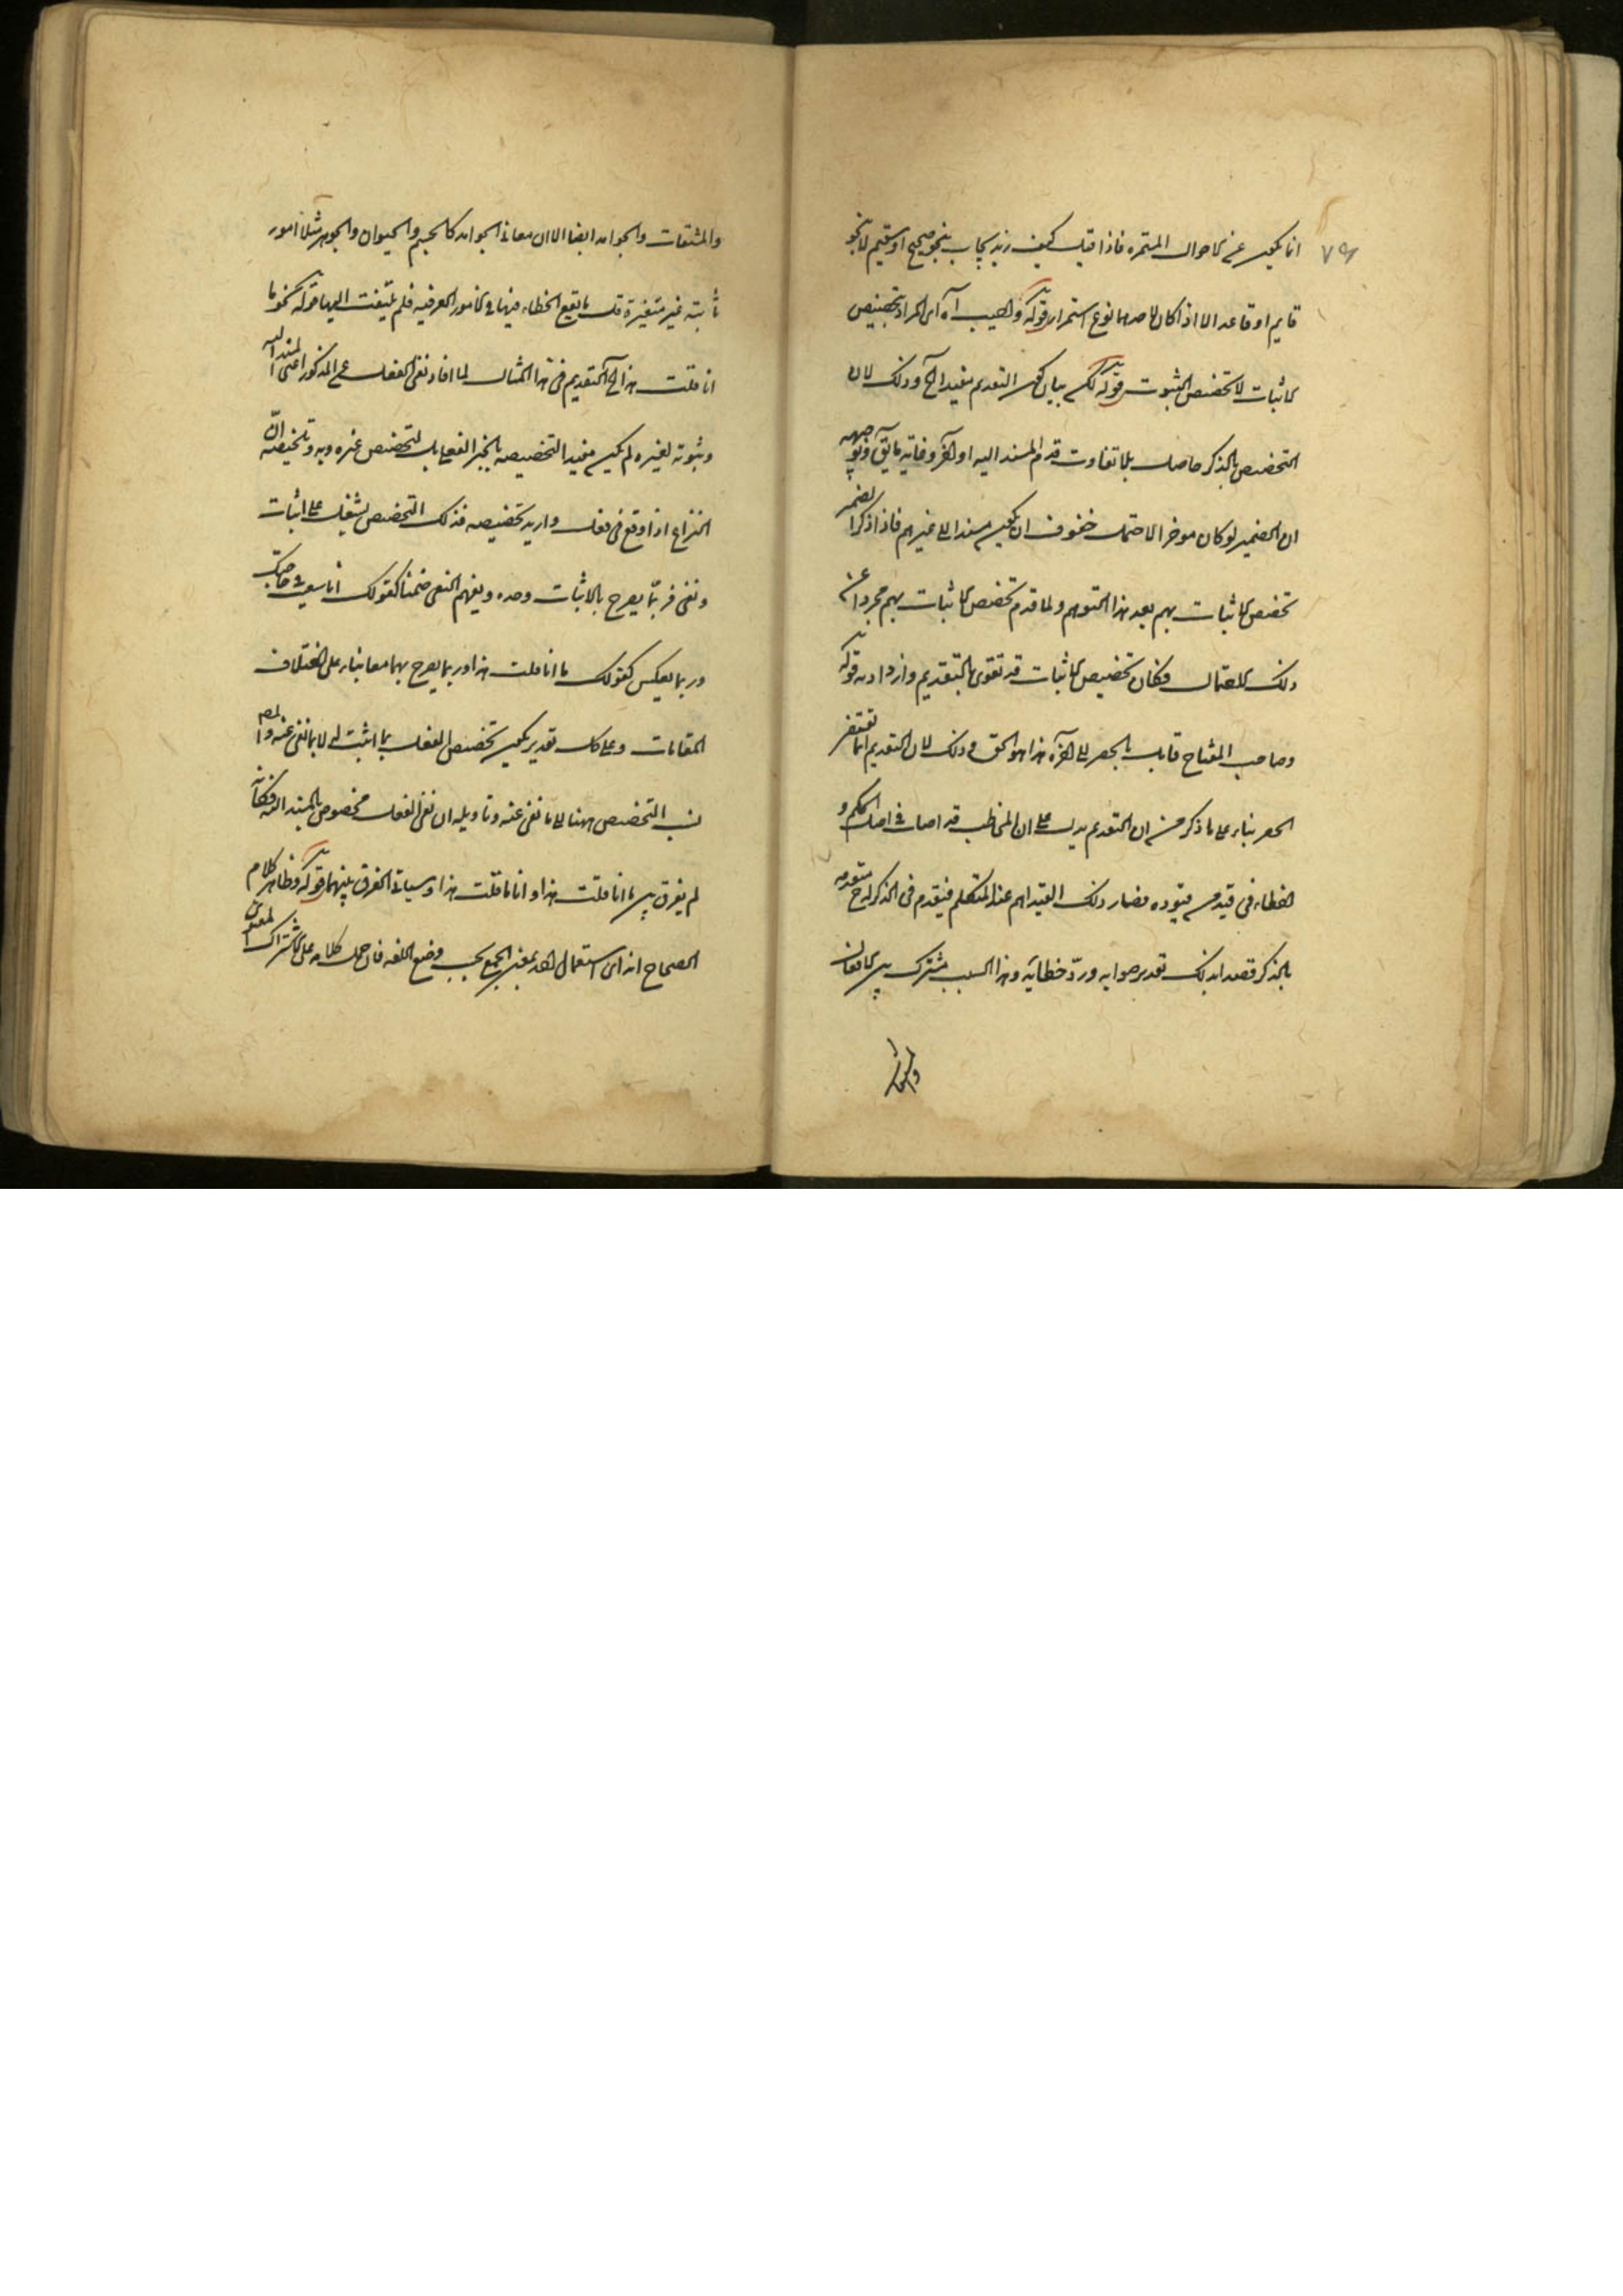 ٧٩
انما يكون عن الاحوال المستمره فاذا قيل كيف زيد يجاب بنحو صحيح او سقيم لا بنحو
قايم او قاعد الا اذا كان لاحدهما نوع استمرار قوله والمجيب آه اى المراد تخصيص
الاثبات لا تخصيص الثبوت قوله لكن بيان كون التقديم مفيدا الخ وذلك لان
التخصيص بالذكر حاصل بلا تفاوت قدم المسند اليه او اخر وغاية ما يق فى توجيهه
ان الضمير لو كان موخرا لاحتمل خفوف ان يكون مسندا الى غيرهم فاذا ذكر الضمير
تخصيص الاثبات بهم بعد هذا التوهم ولما قدم تخصص الاثبات بهم مجردا عن
ذلك الاحتمال فكان تخصيص الاثبات قد تقوى بالتقديم وازداد به قوله
وصاحب المفتاح قايل بالحصر الى اخره هذا هو الحق وذلك لان التقديم انما يقتضى
الحصر بناء على ما ذكر من ان التقديم يدل على ان المخاطب قد اصاب فى اصل الحكم و
اخطاء فى قيد من قيوده فصار ذلك القيد اهم عند المتكلم فيقدم فى الذكر اذ فى تقديمه
بالذكر قصدا بذلك تقرير صوابه ورد خطائه وهذا السبب مشترك بين الافعال
والمشتقات
والمشتقات والجوامد ايضا الا ان معانى الجوامد كالجسم والحيوان والجوهر مثلا امور
ثابتة غير متغيرة قل ما يقع الخطاء فيها فى الامور العرفيه فلم يلتفت اليها قوله نحو ما
انا قلت هذا الخ التقديم فى هذا المثال لما افاد نفى الفعل عن المذكور اعنى المسند اليه
وثبوته لغيره لم يكن مفيدا لتخصيصه بالخبر الفعلى بل لتخصيص غيره به وتلخيصه ان
النزاع اذا وقع فى فعل واريد تخصيصه فذلك التخصيص يشتمل على اثبات
ونفى فربما يصرح بالاثبات وحده ويفهم النفى ضمنا كقولك انا سعيت فى حاجتك
وربما يعكس كقولك ما انا قلت هذا وربما يصرح بهما معا بناء على اختلاف
المقامات وعلى كل تقدير يكون تخصيص الفعل بما اثبت له لا بما نفى عنه والمص
نسب التخصيص ههنا الى ما نفى عنه وتاويله ان نفى الفعل مخصوص بالمسند اليه فكانه
لم يفرق بين ما انا قلت هذا وانا ما قلت هذا وسياتى الفرق بينهما قوله وظاهر كلام
الصحاح انه اى استعمال احد بمعنى الجمع بحسب وضع اللغه فان حمل كلامه على الاشتراك المعنوى